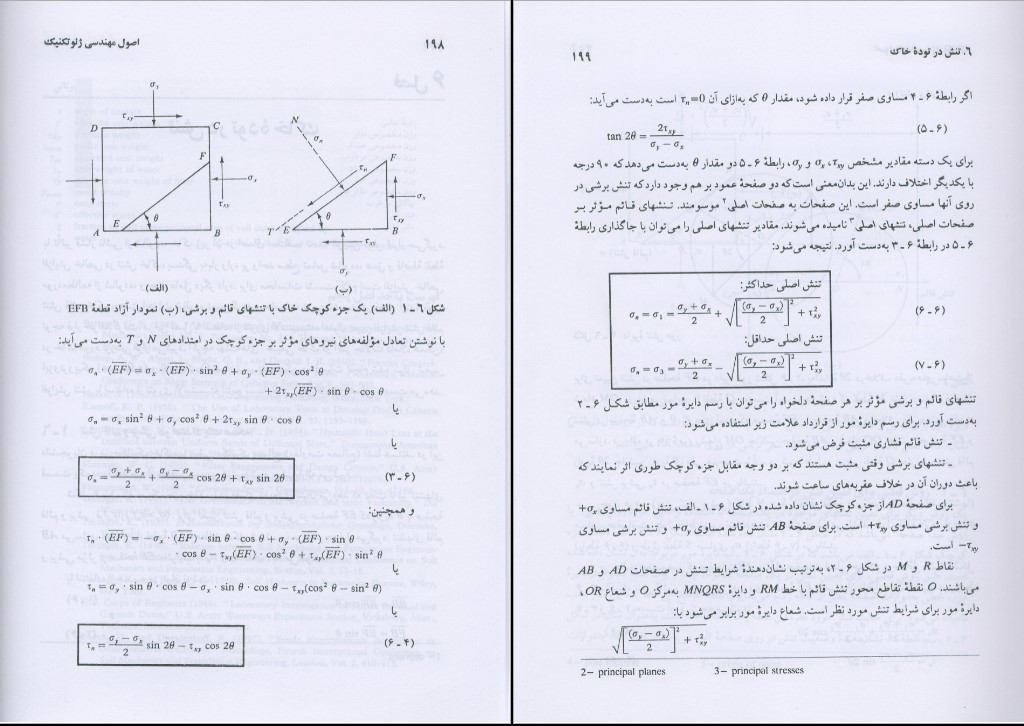 ۱۹۸
اصول مهندسی ژئوتکنیک
σy
τxy
D
C
F
σx
τxy
θ
E
A
B
(الف)
N
σn
τn
F
σx
τxy
θ
T
E
B
τxy
σy
(ب)
شکل ۶ـ۱ (الف) یک جزء کوچک خاک با تنشهای قائم و برشی، (ب) نمودار آزاد قطعهٔ EFB
با نوشتن تعادل مؤلفه‌های نیروهای مؤثر بر جزء کوچک در امتدادهای N و T به‌دست می‌آید:
σn · (EF) = σx · (EF) · sin² θ + σy · (EF) · cos² θ
+ 2τxy(EF) · sin θ · cos θ
یا
σn = σx sin² θ + σy cos² θ + 2τxy sin θ · cos θ
یا
σn = (σy + σx)/2 + (σy − σx)/2 cos 2θ + τxy sin 2θ
(۳ـ۶)
و همچنین:
τn · (EF) = −σx · (EF) · sin θ · cos θ + σy · (EF) · sin θ
· cos θ − τxy(EF) · cos² θ + τxy(EF) · sin² θ
یا
τn = σy · sin θ · cos θ − σx · sin θ · cos θ − τxy(cos² θ − sin² θ)
یا
τn = (σy − σx)/2 sin 2θ − τxy cos 2θ
(۴ـ۶)
۶. تنش در تودهٔ خاک
۱۹۹
اگر رابطهٔ ۶ـ۴ مساوی صفر قرار داده شود، مقدار θ که به‌ازای آن τn=0 است به‌دست می‌آید:
tan 2θ = 2τxy/(σy − σx)
(۵ـ۶)
برای یک دسته مقادیر مشخص σx ،τxy و σy، رابطهٔ ۶ـ۵ دو مقدار θ به‌دست می‌دهد که ۹۰ درجه
با یکدیگر اختلاف دارند. این بدان‌معنی است که دو صفحهٔ عمود بر هم وجود دارد که تنش برشی در
روی آنها مساوی صفر است. این صفحات به صفحات اصلی۲ موسومند. تنشهای قائم مؤثر بر
صفحات اصلی، تنشهای اصلی۳ نامیده می‌شوند. مقادیر تنشهای اصلی را می‌توان با جاگذاری رابطهٔ
۶ـ۵ در رابطهٔ ۶ـ۳ به‌دست آورد. نتیجه می‌شود:
تنش اصلی حداکثر:
σn = σ1 = (σy + σx)/2 + √[(σy − σx)/2]² + τ²xy
(۶ـ۶)
تنش اصلی حداقل:
σn = σ3 = (σy + σx)/2 − √[(σy − σx)/2]² + τ²xy
(۷ـ۶)
تنشهای قائم و برشی مؤثر بر هر صفحهٔ دلخواه را می‌توان با رسم دایرهٔ مور مطابق شکل ۶ـ۲
به‌دست آورد. برای رسم دایرهٔ مور از قرارداد علامت زیر استفاده می‌شود:
ـ تنش قائم فشاری مثبت فرض می‌شود.
ـ تنشهای برشی وقتی مثبت هستند که بر دو وجه مقابل جزء کوچک طوری اثر نمایند که
باعث دوران آن در خلاف عقربه‌های ساعت شوند.
برای صفحهٔ AD از جزء کوچک نشان داده شده در شکل ۶ـ۱ـ الف، تنش قائم مساوی +σx
و تنش برشی مساوی +τxy است. برای صفحهٔ AB تنش قائم مساوی +σy و تنش برشی مساوی
−τxy است.
نقاط R و M در شکل ۶ـ۲، به‌ترتیب نشان‌دهندهٔ شرایط تنش در صفحات AD و AB
می‌باشند. O نقطهٔ تقاطع محور تنش قائم با خط RM و دایرهٔ MNQRS به‌مرکز O و شعاع OR،
دایرهٔ مور برای شرایط تنش مورد نظر است. شعاع دایرهٔ مور برابر می‌شود با:
√[(σy − σx)/2]² + τ²xy
2− principal planes
3− principal stresses